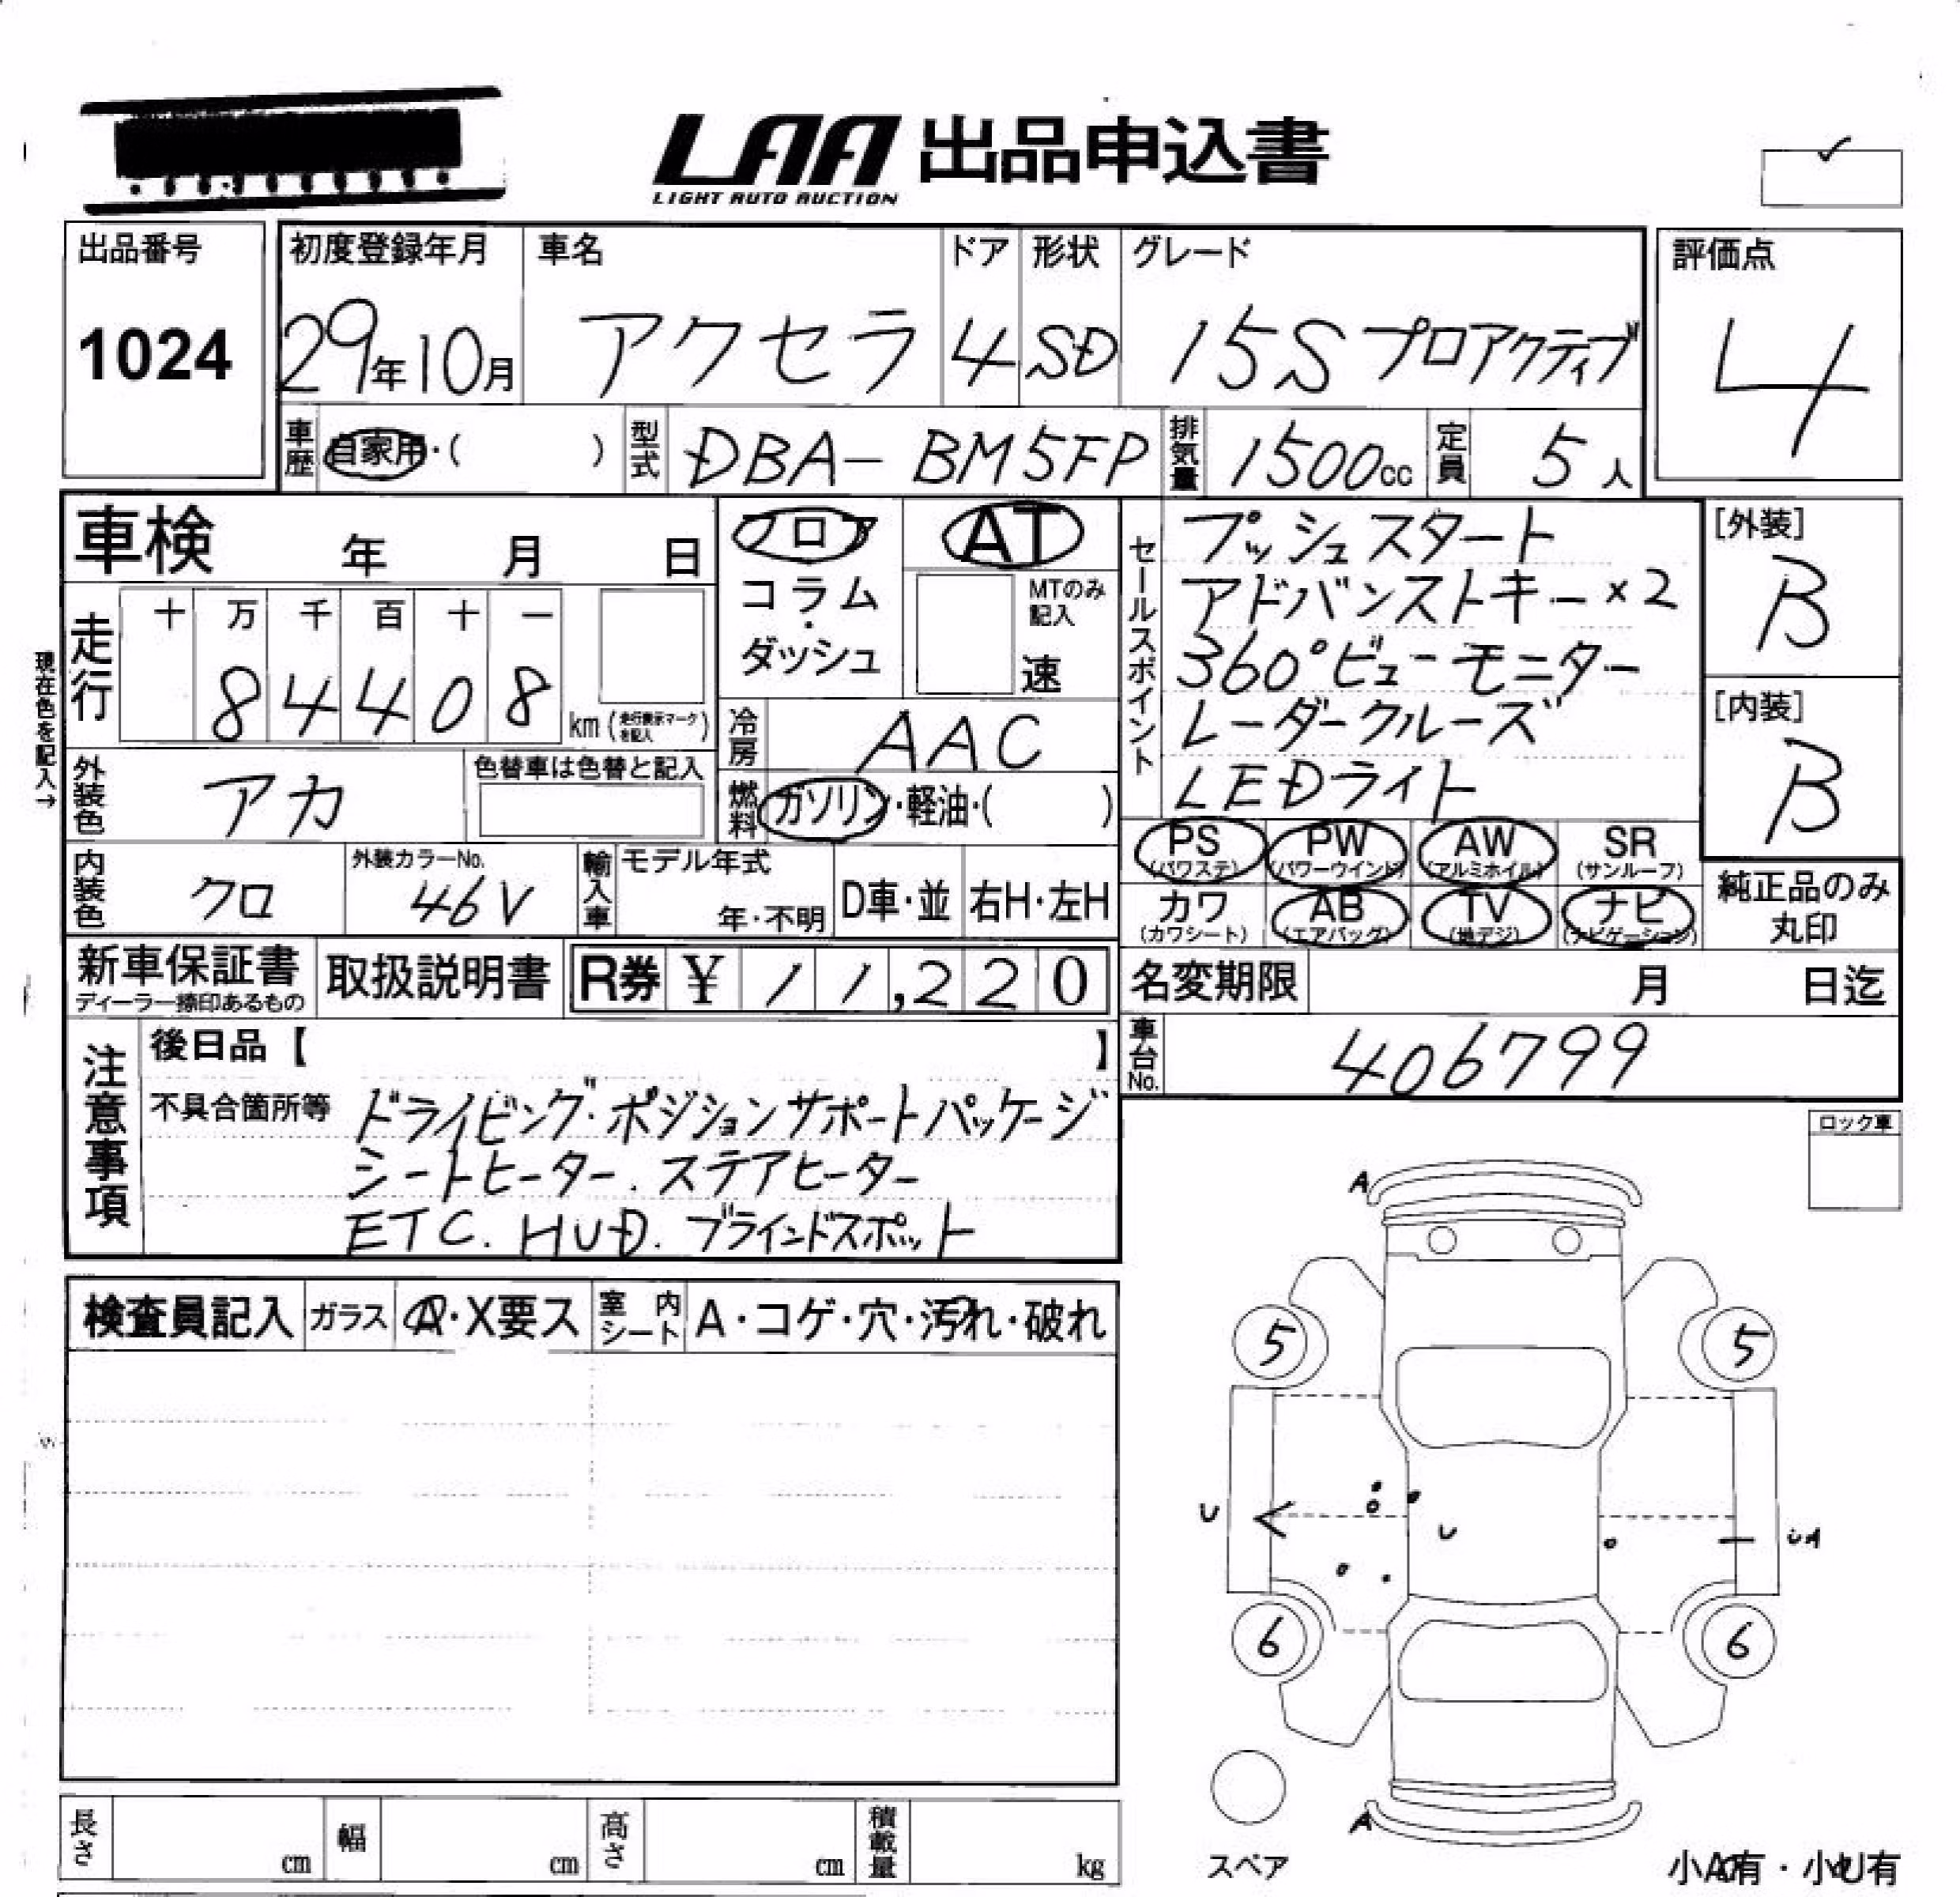 LAA 出品申込書
LIGHT AUTO AUCTION
出品番号
1024
初度登録年月
29年10月
車名
アクセラ
ドア
4
形状
SD
グレード
15S プロアクティブ
評価点
4
車歴
自家用・( )
型式
DBA- BM5FP
排気量
1500cc
定員
5人
車検 年 月 日
フロア
コラム
・
ダッシュ
AT
MTのみ
記入
速
セールスポイント
プッシュスタート
アドバンストキー×2
360°ビューモニター
レーダークルーズ
LEDライト
[外装]
B
[内装]
B
現在色を記入→
走行
十 万 千 百 十 一
8 4 4 0 8
km (走行表示マークを記入)
冷房
AAC
燃料
ガソリン・軽油・( )
外装色
アカ
色替車は色替と記入
PS
(パワステ)
PW
(パワーウインド)
AW
(アルミホイル)
SR
(サンルーフ)
カワ
(カワシート)
AB
(エアバッグ)
TV
(地デジ)
ナビ
(ナビゲーション)
純正品のみ
丸印
内装色
クロ
外装カラーNo.
46V
輸入車
モデル年式
年・不明
D車・並
右H・左H
新車保証書
ディーラー捺印あるもの
取扱説明書
R券 ¥ 11,220
名変期限 月 日迄
車台No.
406799
注意事項
後日品【 】
不具合箇所等
ドライビング・ポジションサポートパッケージ
シートヒーター.ステアヒーター
ETC. HUD. ブラインドスポット
ロック車
検査員記入
ガラス
A・X要ス
室内シート
A・コゲ・穴・汚れ・破れ
A
5
5
U
U
UA
6
6
A
スペア
小A有・小U有
長さ cm
幅 cm
高さ cm
積載量 kg